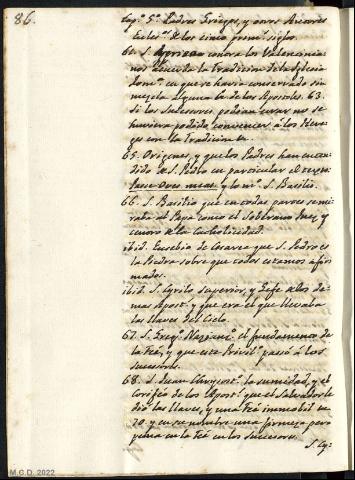 86.
Cap.º 5.º Padres Griegos, y otros Autores
Ecles.ᵒˢ de los cinco prim.ˢ siglos.
62. S. Irineo contra los Valentinia-
nos acuerda la Tradicion de la Iglesia
Rom.ª en que se havia conservado sin
mezcla alguna la de los Apostoles. 63.
Si los Sucesores podian errar no se
huviera podido convencer a los Here-
ges con la Tradicion
65. Origenes, y que los Padres han enten-
dido de S. Pedro en particular el
Pasce oves meas, y lo m.º S. Basilio.
66. S. Basilio que en todas partes se mi-
raba al Papa como el Soberano Juez, y
centro de la Catholicidad.
ibid. Eusebio de Cesarea que S. Pedro es
la Piedra sobre que todos estamos afir-
mados.
ibid. S. Cyrilo Superior, y Gefe de los de-
mas Apost.ˢ y que era el que llevaba
las llaves del Cielo.
67. S. Greg.º Nazianc.º el fundamento de
la Feé, y que este Privil.º pasó á los
sucesores.
68. S. Juan Chrysost.º la sumidad, y el
Corifeo de los Apost.ˢ que el Salvador le
dió las llaves, y una Feé immobil
y en su nombre una firmeza perp
petua en la Feé en los Sucesores.
S. Cy-
M.C.D. 2022